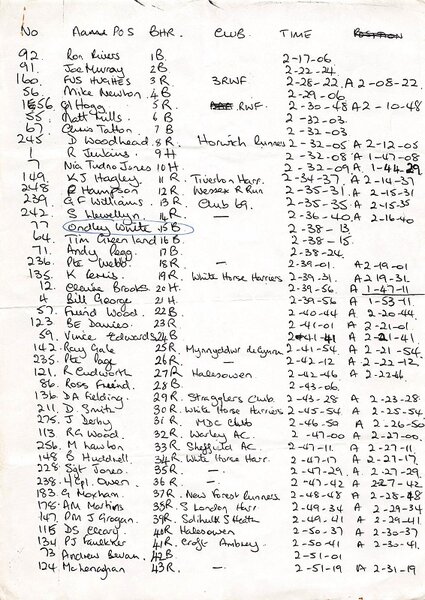 No Name POS BHR. CLUB. TIME
92. Ron Rivers 1B 2-17-06.
91. Joe Murray 2B 2-22-24.
160. HUGHES 3R 3RWF 2-28-22. A 2-08-22.
56. Mike Newton 4B 2-29-06
Hogg 5R RWF. 2-30-48 A 2-10-48
55. Matt Mills 6B 2-32-03.
67. Chris Tatton 7B 2-32-03
245 D Woodhead 8R Horwich Runners 2-32-05 A 2-12-05
1 R Jenkins 9H 2-32-08 A 1-47-08
7 Nia Tudno Jones 10H 2-32-08 A 1-44-29
149. K J Hagley 11R Tiverton Harr. 2-34-37 A 2-14-37
248 P Hampson 12R Wessex R Run 2-35-31 A 2-15-31
239. G F Williams 13R Club 69. 2-35-35 A 2-15-35
242. S Llewellyn 14R — 2-36-40 A 2-16-40
77 White 15B 2-38-13
64. Tim Greenland 16B 2-38-15.
71. Andy 17B 2-38-24
236. Pte Webb 18R — 2-39-01 A 2-19-01
135. K Lewis 19R White Horse Harriers 2-39-31. A 2-19-31
12. Brooks 20H 2-39-56 A 1-47-11
4 Bill George 21H 2-39-56 A 1-53-11.
57. Wood 22B 2-40-44 A 2-20-44.
123 BE Davies 23R — 2-41-01 A 2-21-01
59. Vince Edwards 24B 2-41-41 A 2-21-41
142. Ray Gale 25R Mynyddwr de Cymru 2-41-54 A 2-21-54
235. Pte Page 26R — 2-42-12 A 2-22-12.
121. R Cudworth 27R Halesowen 2-42-46 A 2-22-46
86. Ross Friend 28B 2-43-06.
136. DA Fielding. 29R Stragglers Club 2-43-28 A 2-23-28.
211. D Smith 30R White Horse Harriers 2-45-54 A 2-25-54
275. J Derby 31R MDC Club 2-46-50 A 2-26-50
113 RG Wood 32R Warley AC. 2-47-00 A 2-27-00.
256. M Lawton 33R Sheffield AC 2-47-11. A 2-27-11
148 B Hudnell 34R White Horse Harr. 2-47-17 A 2-27-17
228 Sgt Jones 35R — 2-47-29. A 2-27-29
238. Owen 36R — 2-47-42 A 2-27-42
183. G Moxham. 37R New Forest Runners 2-48-48 A 2-28-48
178. AM Martins 38R S London Harr 2-49-34 A 2-29-34
147 DM J Grogan 39R Solihull S Heath 2-49-41 A 2-29-41
115 DS Cleary 40R Halesowen 2-50-37 A 2-30-37
134 PJ Faulkner 41R Croft Ambrey 2-50-41 A 2-30-41.
73 Andrew Bevan 42B 2-51-01
124 McLenaghan 43R. — 2-51-19 A 2-31-19